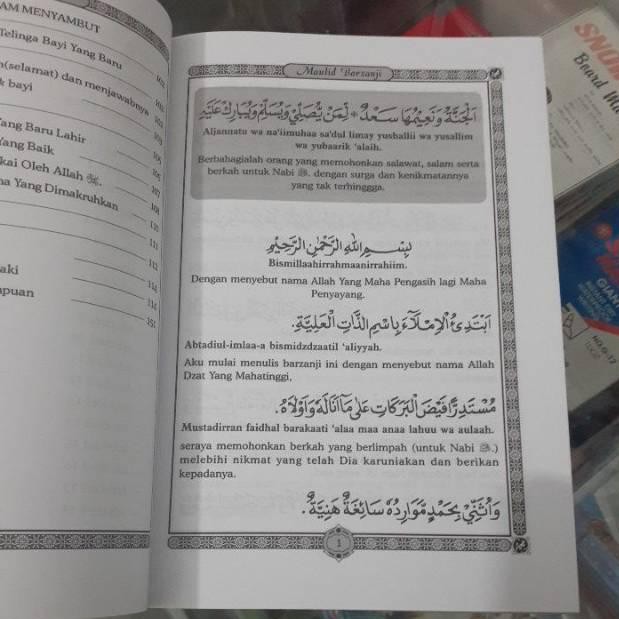 AM MENYAMBUT
Telinga Bayi Yang Baru
(selamat) dan menjawabnya
k bayi
Yang Baru Lahir
Yang Baik
kai Oleh Allah ﷻ.
na Yang Dimakruhkan
aki
mpuan
108
110
111
112
114
114
151
Maulid 'Barzanji
اَلْجَنَّةُ وَنَعِيْمُهَا سَعْدٌ * لِمَنْ يُّصَلِّيْ وَيُسَلِّمُ وَيُبَارِكُ عَلَيْهِ
Aljannatu wa na'iimuhaa sa'dul limay yushallii wa yusallim
wa yubaarik 'alaih.
Berbahagialah orang yang memohonkan salawat, salam serta
berkah untuk Nabi ﷺ. dengan surga dan kenikmatannya
yang tak terhinggga.
بِسْمِ اللهِ الرَّحْمٰنِ الرَّحِيْمِ
Bismillaahirrahmaanirrahiim.
Dengan menyebut nama Allah Yang Maha Pengasih lagi Maha
Penyayang.
اَبْتَدِئُ الْإِمْلَآءَ بِاسْمِ الذَّاتِ الْعَلِيَّةِ.
Abtadiul-imlaa-a bismidzdzaatil 'aliyyah.
Aku mulai menulis barzanji ini dengan menyebut nama Allah
Dzat Yang Mahatinggi,
مُسْتَدِرًّا فَيْضَ الْبَرَكَاتِ عَلٰى مَآ اَنَالَهُ وَاَوْلَاهُ.
Mustadirran faidhal barakaati 'alaa maa anaa lahuu wa aulaah.
seraya memohonkan berkah yang berlimpah (untuk Nabi ﷺ.)
melebihi nikmat yang telah Dia karuniakan dan berikan
kepadanya.
وَاُثَنِّيْ بِحَمْدٍ مَوَارِدُهُ سَائِغَةٌ هَنِيَّةٌ.
1
SNOW
Board
GIANT
NO.G-12